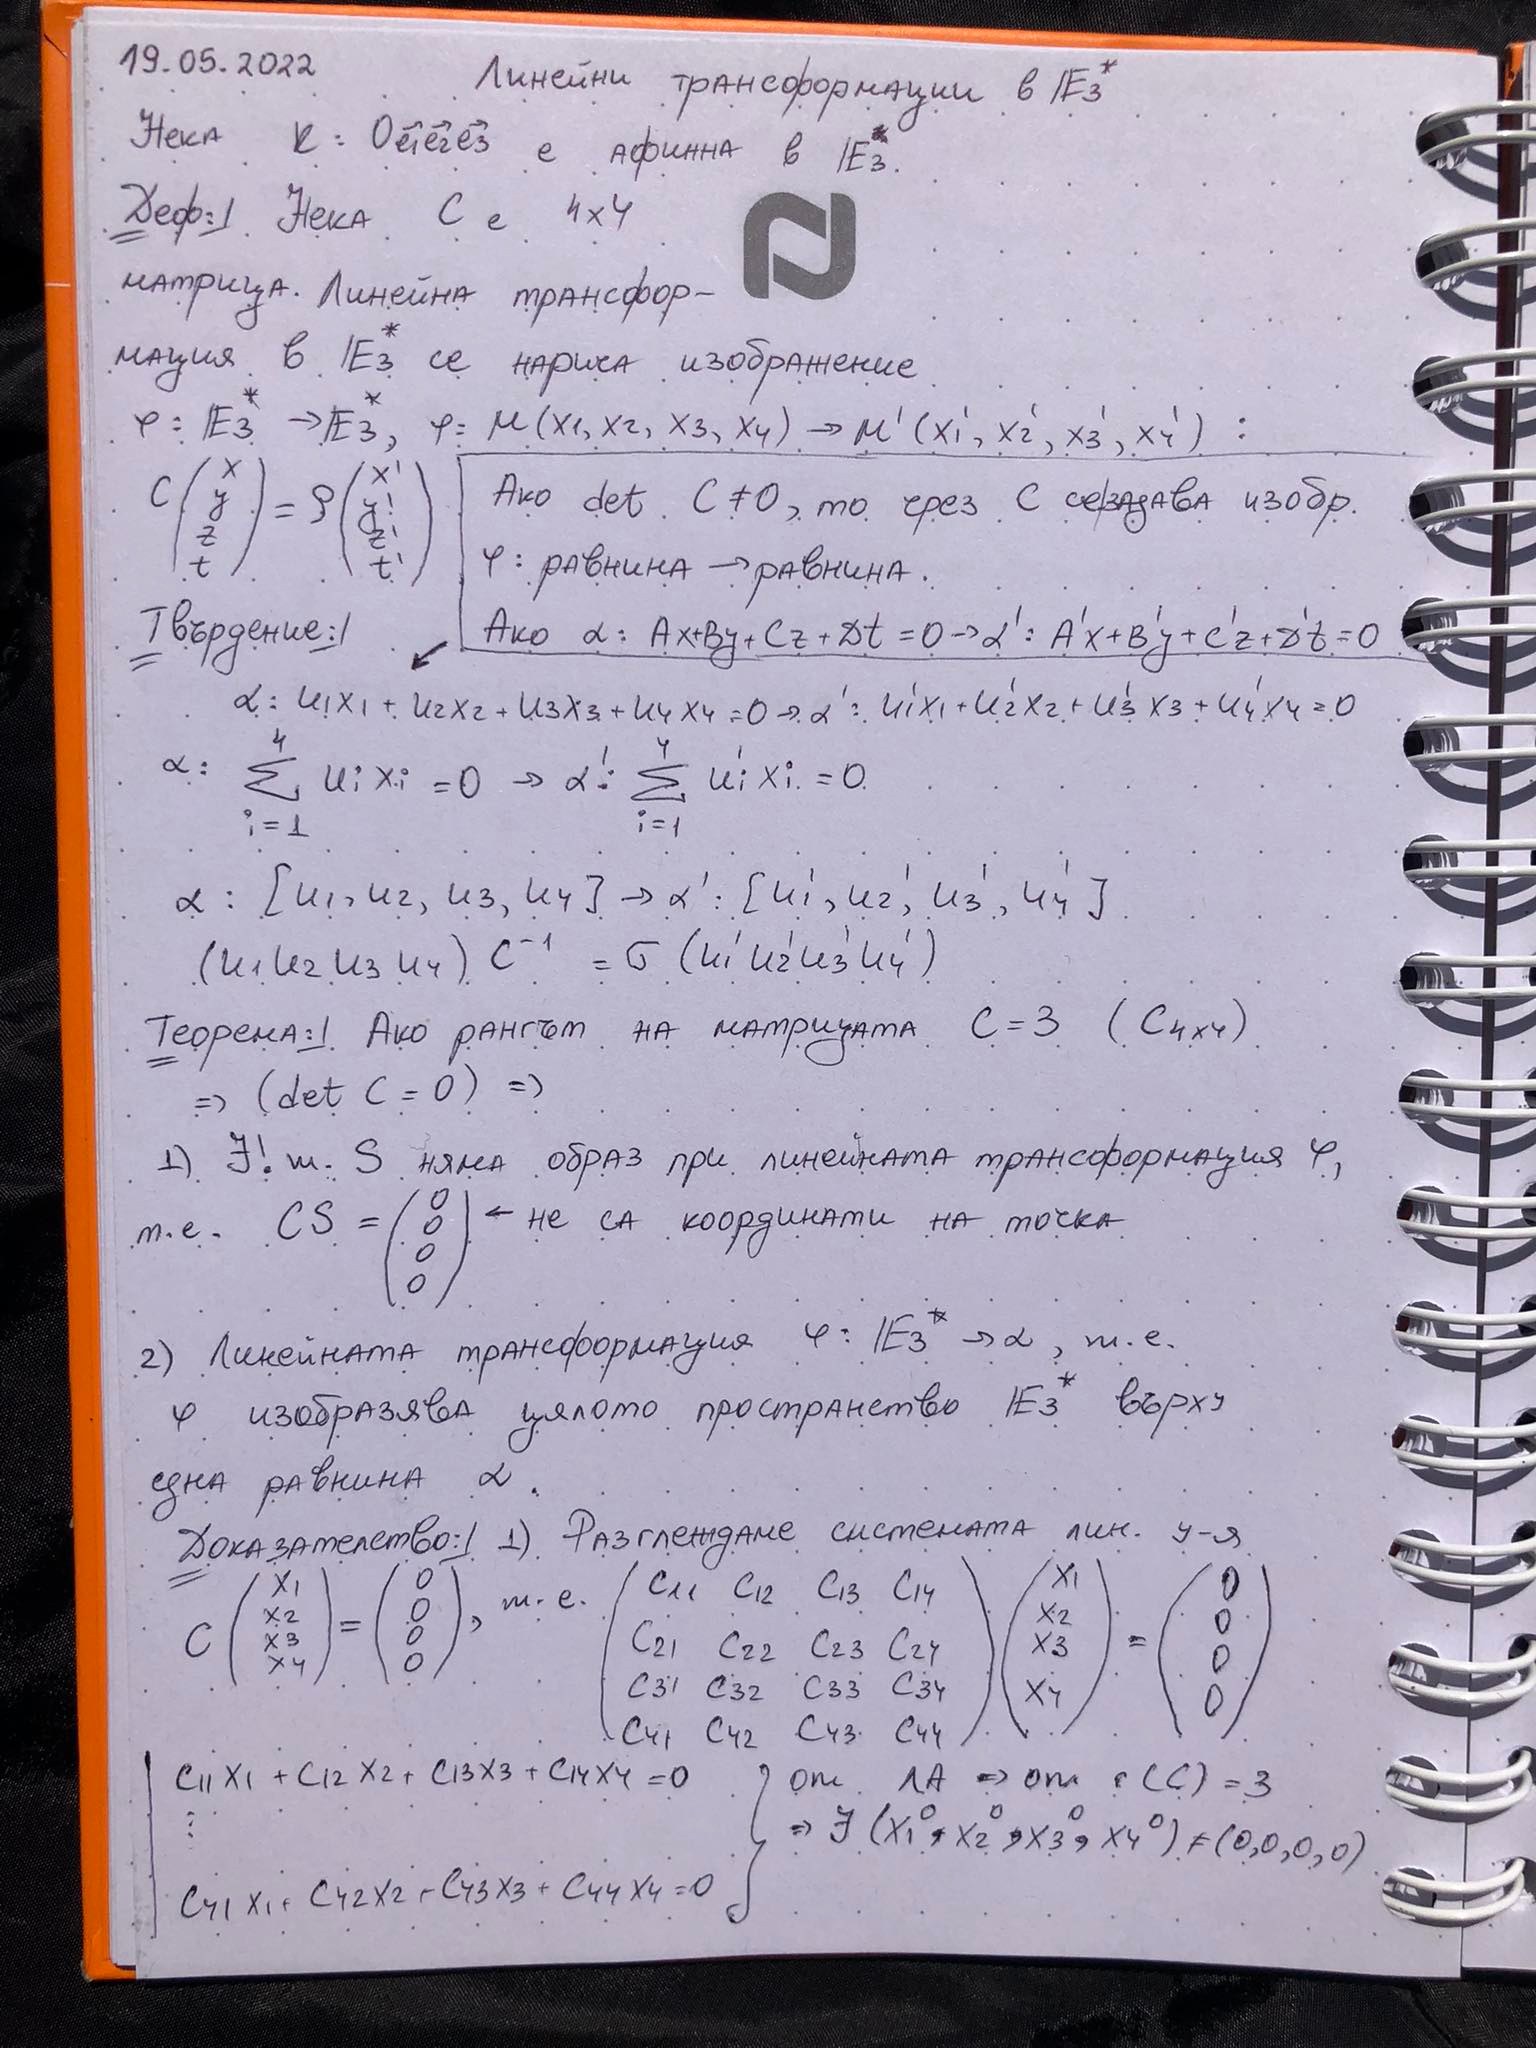 19.05.2022 Линейни трансформации в E3*
Нека K: Oe1→e2→e3→ е афинна в E3*.
Деф:1 Нека C е 4x4
матрица. Линейна трансфор-
мация в E3* се нарича изображение
φ: E3* → E3*, φ= M(x1, x2, x3, x4) → M'(x1', x2', x3', x4') :
C (x y z t) = ρ (x' y' z' t')
Ако det C ≠ 0, то чрез C се задава изобр.
φ: равнина → равнина.
Ако α: Ax+By+Cz+Dt=0 → α': A'x+B'y+C'z+D't=0
Твърдение:1
α: u1x1 + u2x2 + u3x3 + u4x4 = 0 → α': u1'x1 + u2'x2 + u3'x3 + u4'x4 = 0
α: ∑_{i=1}^{4} ui xi = 0 → α': ∑_{i=1}^{4} ui' xi = 0
α: [u1, u2, u3, u4] → α': [u1', u2', u3', u4']
(u1 u2 u3 u4) C⁻¹ = σ (u1' u2' u3' u4')
Теорема:1 Ако рангът на матрицата C = 3 (C4x4)
=> (det C = 0) =>
1) ∃! т. S няма образ при линейната трансформация φ,
т.е. CS = (0 0 0 0) ← не са координати на точка
2) Линейната трансформация φ: E3* → α, т.е.
φ изобразява цялото пространство E3* върху
една равнина α.
Доказателство:1 1) Разглеждаме системата лин. у-я
C (x1 x2 x3 x4) = (0 0 0 0), т.е. (C11 C12 C13 C14
C21 C22 C23 C24
C31 C32 C33 C34
C41 C42 C43 C44) (x1 x2 x3 x4) = (0 0 0 0)
C11x1 + C12x2 + C13x3 + C14x4 = 0
⋮
C41x1 + C42x2 + C43x3 + C44x4 = 0
от ЛА => от r(C) = 3
=> ∃ (x1⁰, x2⁰, x3⁰, x4⁰) ≠ (0,0,0,0)